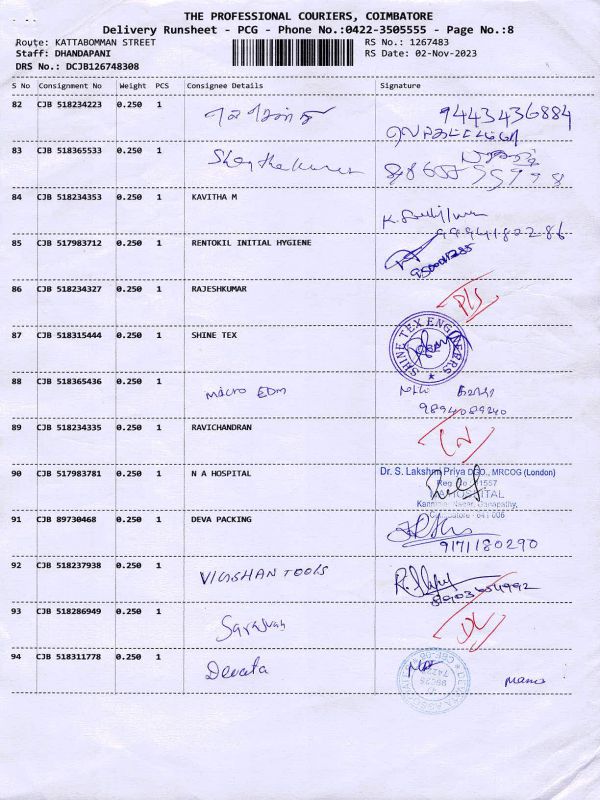 THE PROFESSIONAL COURIERS, COIMBATORE
Delivery Runsheet - PCG - Phone No.:0422-3505555 - Page No.:8
Route: KATTABOMMAN STREET
Staff: DHANDAPANI
DRS No.: DCJB126748308
RS No.: 1267483
RS Date: 02-Nov-2023
S No Consignment No Weight PCS Consignee Details Signature
82 CJB 518234223 0.250 1 9443436884
83 CJB 518365533 0.250 1
84 CJB 518234353 0.250 1 KAVITHA M K.
9994180286
85 CJB 517983712 0.250 1 RENTOKIL INITIAL HYGIENE
86 CJB 518234327 0.250 1 RAJESHKUMAR
87 CJB 518315444 0.250 1 SHINE TEX SHINE TEX ENGINEERRS
88 CJB 518365436 0.250 1 macro EDM
9894089240
89 CJB 518234335 0.250 1 RAVICHANDRAN
90 CJB 517983781 0.250 1 N A HOSPITAL Dr. S. Lakshmi Priya DGO., MRCOG (London)
HOSPITAL
Nagar, Ganapathy,
Coimbatore - 641 006
91 CJB 89730468 0.250 1 DEVA PACKING
9171180290
92 CJB 518237938 0.250 1 VIGNSHAN TOOLS
93 CJB 518286949 0.250 1 Saravan
94 CJB 518311778 0.250 1 Devata